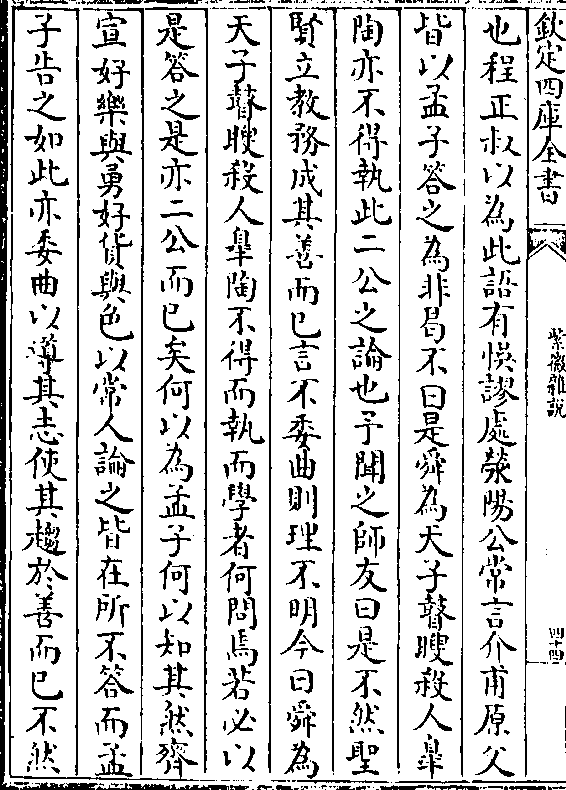 欽定四庫全書
紫微雜說
四十四
也程正叔以為此語有悞謬處滎陽公常言介甫原父
皆以孟子答之為非曷不曰是舜為天子瞽瞍殺人臯
陶亦不得執此二公之論也予聞之師友曰是不然聖
賢立教務成其善而已言不委曲則理不明今曰舜為
天子瞽瞍殺人臯陶不得而執而學者何問焉若必以
是答之是亦二公而已矣何以為孟子何以知其然齊
宣好樂與勇好貨與色以常人論之皆在所不答而孟
子告之如此亦委曲以導其志使其趨於善而已不然